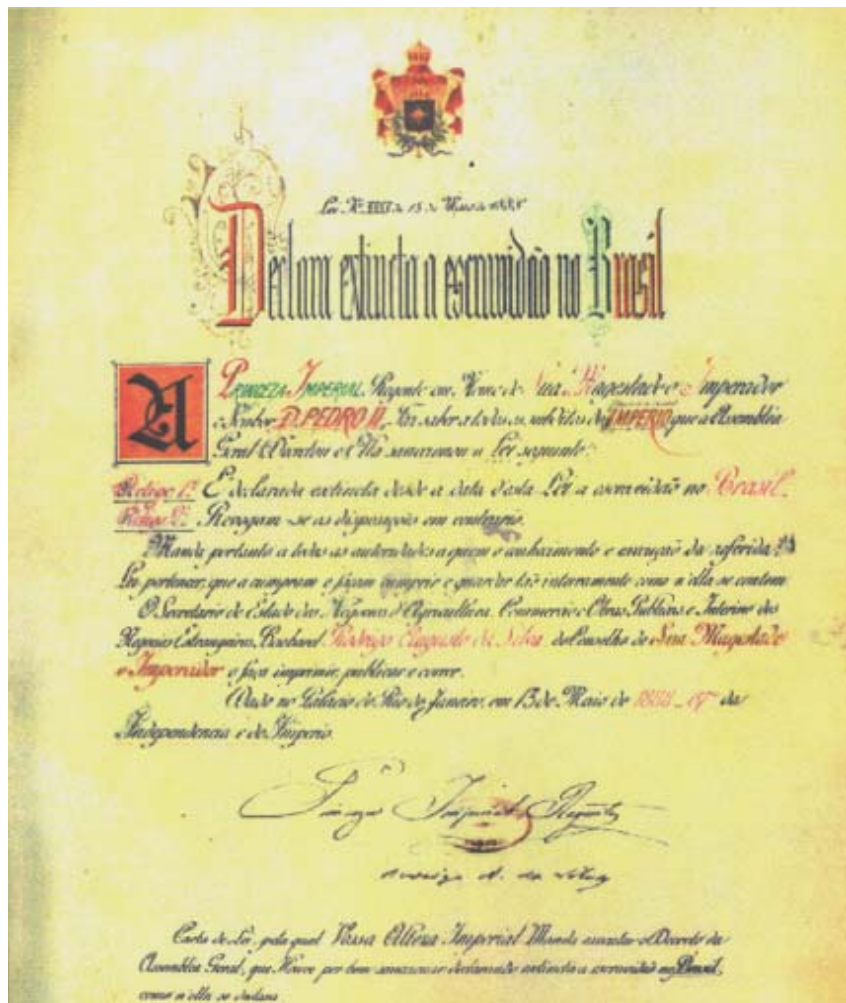 Lei Nº 3353 de 13 de Maio de 1888
Declara extincta a escravidão no Brasil
A PRINCEZA IMPERIAL, Regente em Nome de Sua Magestade o Imperador
o Senhor D. PEDRO II, Faz saber a todos os subditos do IMPERIO que a Assembléa
Geral Decretou e Ella sanccionou a Lei seguinte:
Artigo 1º: É declarada extincta desde a data desta Lei a escravidão no Brazil.
2º: Revogam-se as disposições em contrario.
Manda portanto a todas as autoridades a quem o conhecimento e execução da referida
Lei pertencer, que a cumpram e façam cumprir e guardar tão inteiramente como n'ella se contem.
O Secretario de Estado dos Negocios d'Agricultura, Commercio e Obras Publicas e Interino dos
Negocios Estrangeiros, Bacharel Rodrigo Augusto da Silva do Conselho de Sua Magestade
o Imperador o faça imprimir, publicar e correr.
Dado no Palacio do Rio de Janeiro, em 13 de Maio de 1888_67º da
Independencia e do Imperio.
Princeza Imperial Regente
Rodrigo A. da Silva
Carta de Lei, pela qual Vossa Alteza Imperial Manda executar o Decreto da
Assembléa Geral, que Houve por bem sanccionar declarando extincta a escravidão no Brazil,
como n'ella se declara